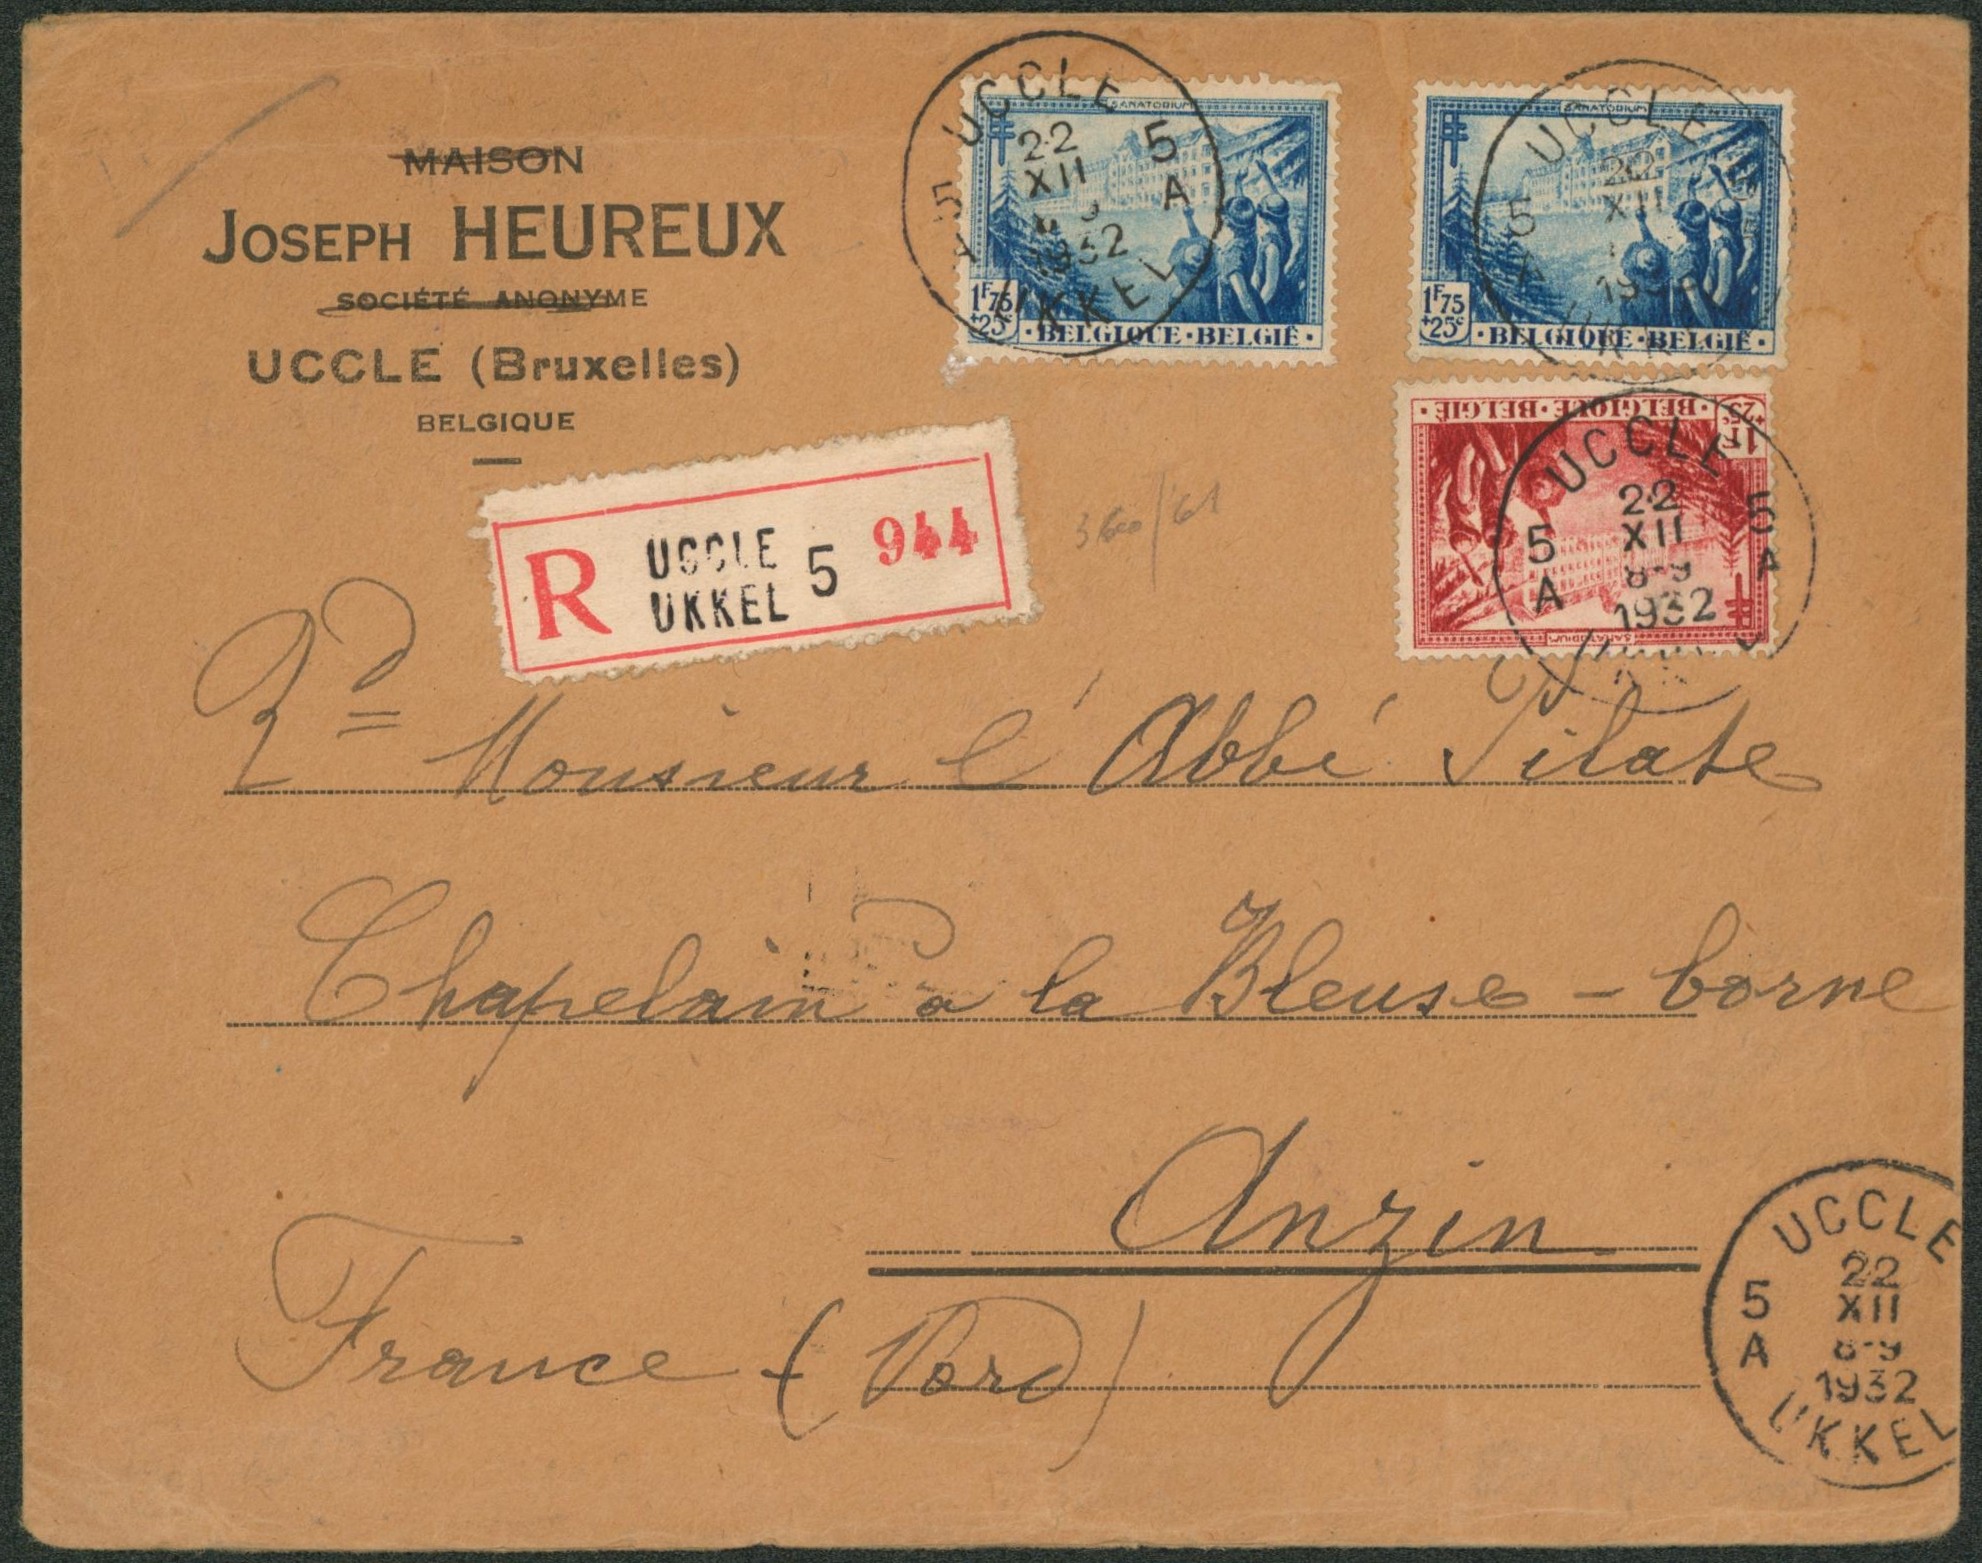 MAISON
JOSEPH HEUREUX
SOCIÉTÉ ANONYME
UCCLE (Bruxelles)
BELGIQUE
SANATORIUM
1F75
+25c
·BELGIQUE·BELGIË·
UCCLE
22
XII
1932
UKKEL
5
A
5
A
SANATORIUM
1F75
+25c
·BELGIQUE·BELGIË·
UCCLE
XII
5
A
SANATORIUM
1F
+25c
·BELGIQUE·BELGIË·
UCCLE
22
XII
8-9
1932
5
A
5
A
R UCCLE UKKEL 5 944
360/61
Rd Monsieur l'Abbé Pilate
Chapelain à la Bleuse-borne
Anzin
France - (Nord)
UCCLE
22
XII
8-9
1932
UKKEL
5
A